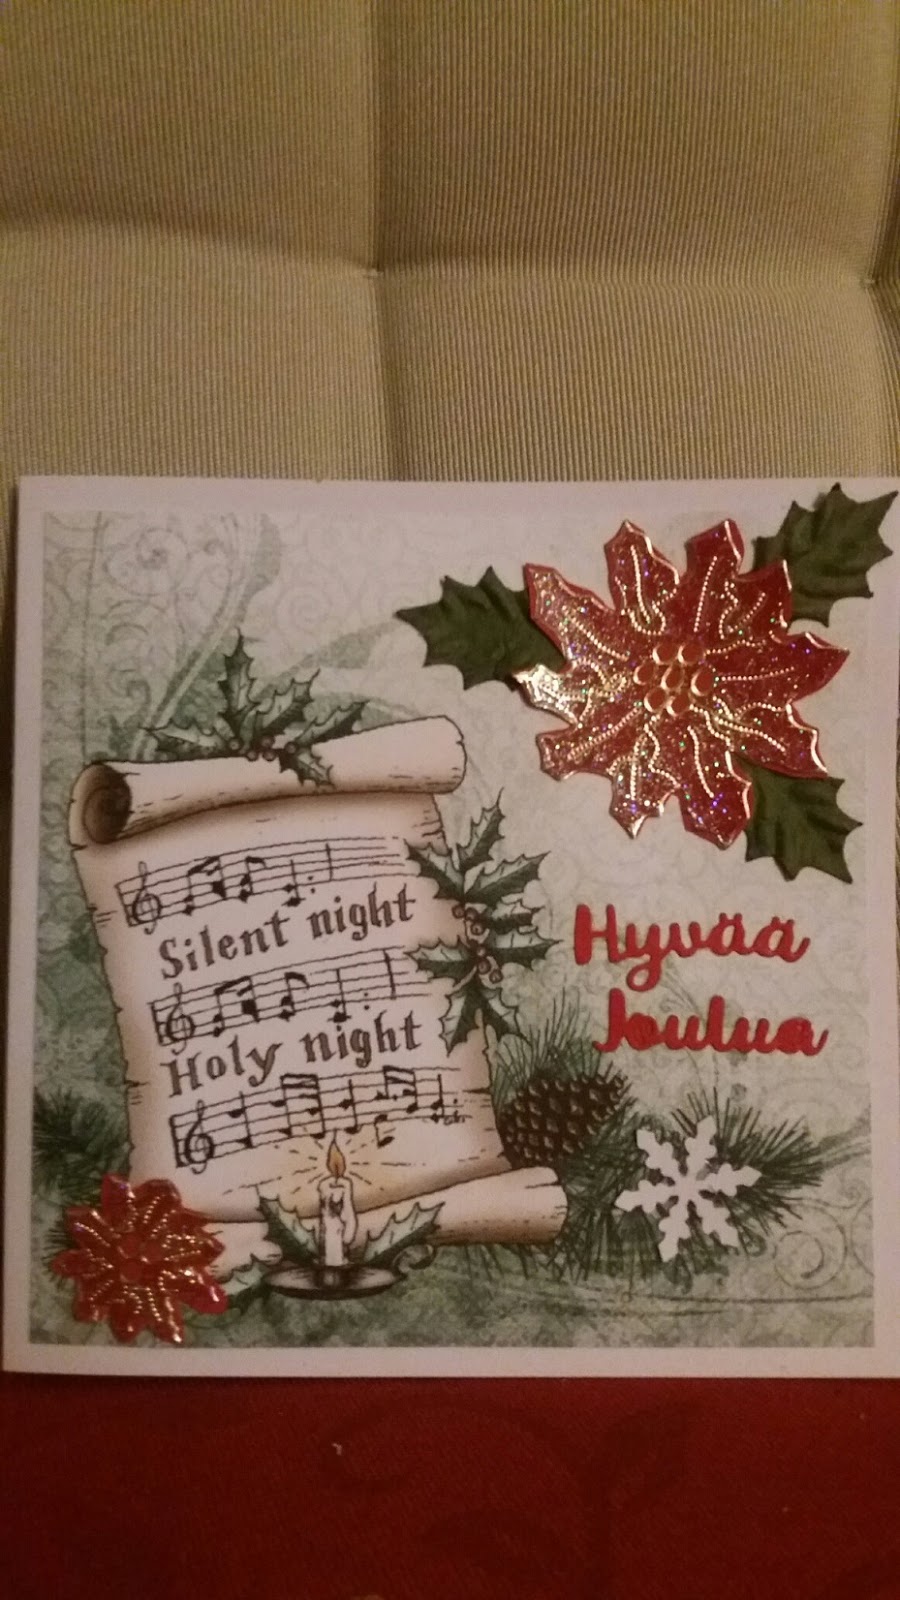 Silent night
Holy night
Hyvää
Joulua